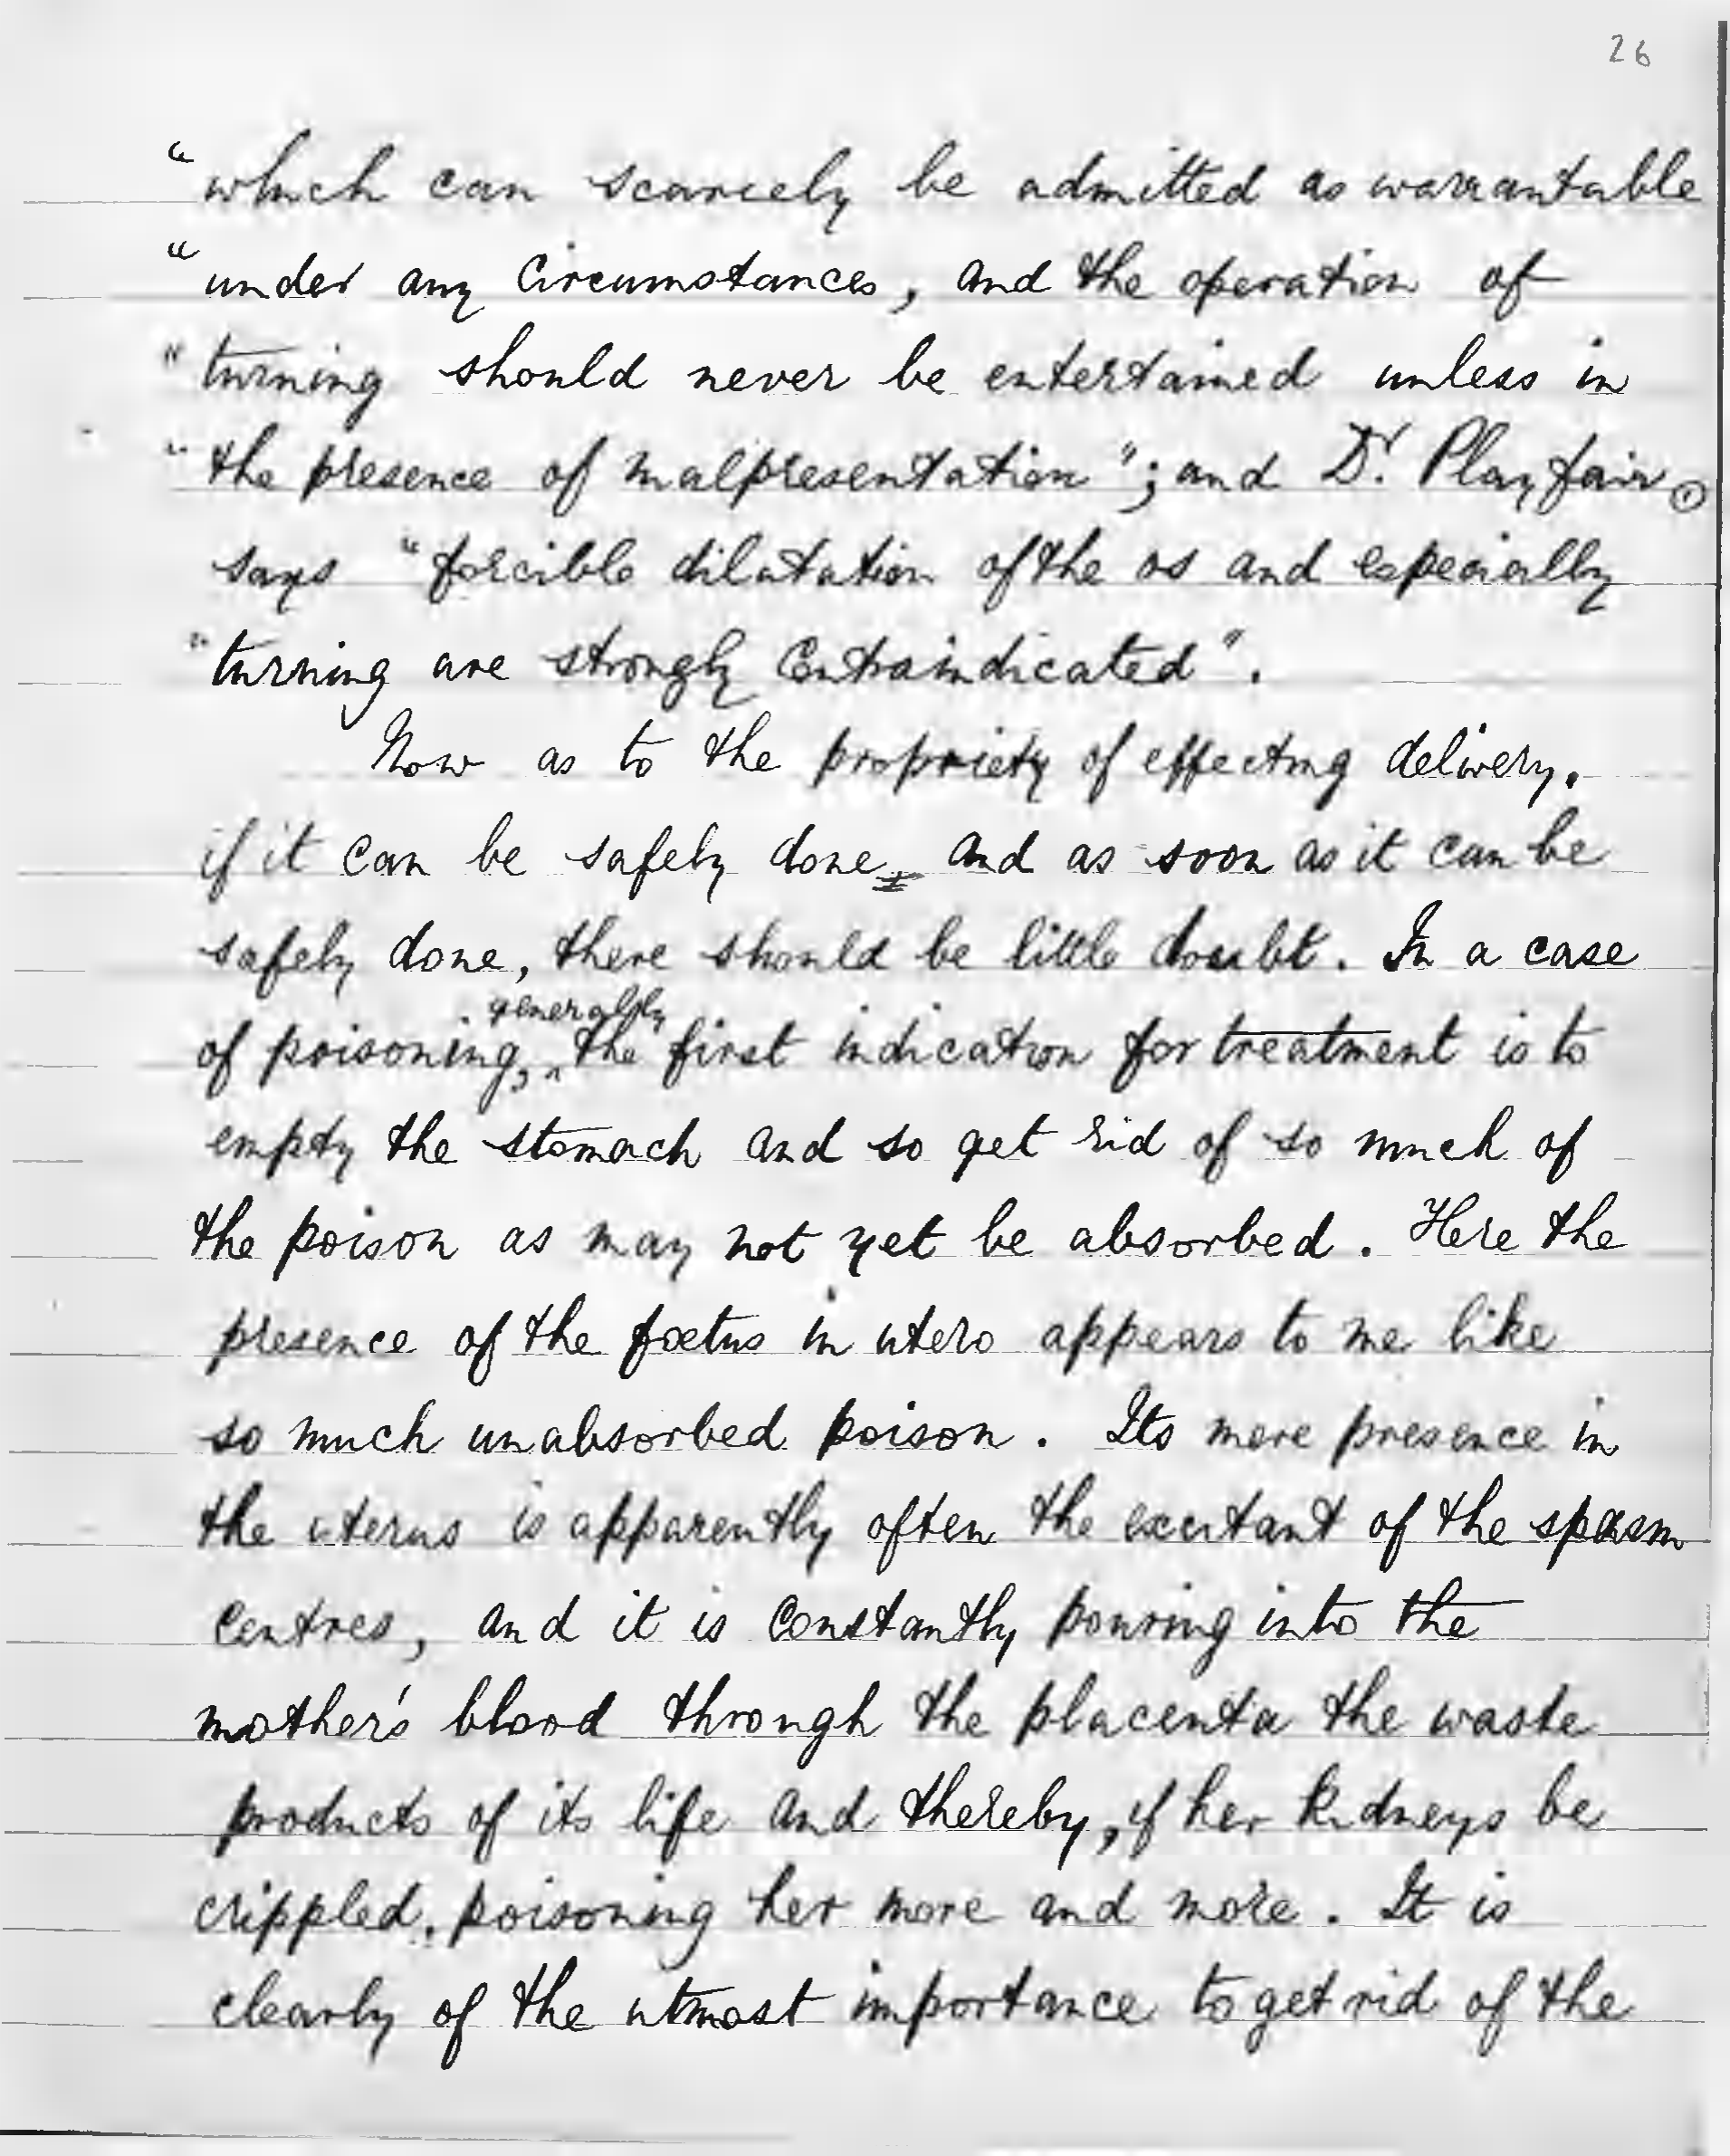 26
"which can scarcely be admitted as warrantable
"under any Circumstances, and the operation of
"turning should never be entertained unless in
"the presence of malpresentation"; and Dr. Playfair ①
says "forcible dilatation of the os and especially
"turning are strongly Contraindicated".
Now as to the propriety of effecting delivery.
if it can be safely done, and as soon as it can be
safely done, there should be little doubt. In a case
generally
of poisoning, ^ the first indication for treatment is to
empty the stomach and so get rid of so much of
the poison as may not yet be absorbed. Here the
presence of the foetus in utero appears to me like
so much unabsorbed poison. Its mere presence in
the uterus is apparently often the excitant of the spasm
Centres, and it is Constantly pouring into the
mother's blood through the placenta the waste
products of its life and thereby, if her kidneys be
crippled, poisoning her more and more. It is
clearly of the utmost importance to get rid of the